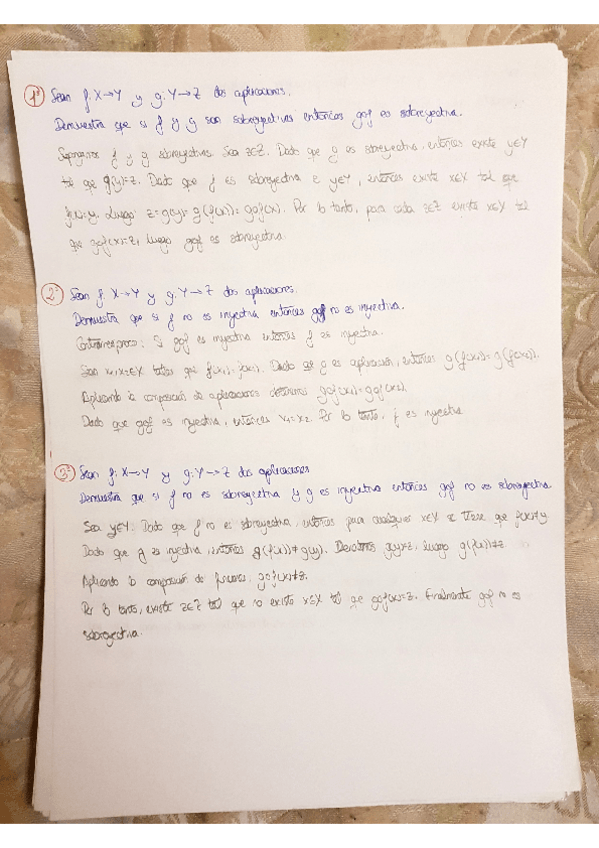 1º Sean f: X→Y y g: Y→Z dos aplicaciones.
Demuestra que si f y g son sobreyectivas entonces gof es sobreyectiva.
Supongamos f y g sobreyectivas. Sea z∈Z. Dado que g es sobreyectiva, entonces existe y∈Y
tal que g(y)=z. Dado que f es sobreyectiva e y∈Y, entonces existe x∈X tal que
f(x)=y. Luego z=g(y)=g(f(x))=gof(x). Por lo tanto, para cada z∈Z existe x∈X tal
que gof(x)=z, luego gof es sobreyectiva.
2º Sean f: X→Y y g: Y→Z dos aplicaciones.
Demuestra que si f no es inyectiva entonces gof no es inyectiva.
Contrarrecíproco: Si gof es inyectiva entonces f es inyectiva.
Sean x₁,x₂∈X tales que f(x₁)=f(x₂). Dado que g es aplicación, entonces g(f(x₁))=g(f(x₂)).
Aplicando la composición de aplicaciones obtenemos gof(x₁)=gof(x₂).
Dado que gof es inyectiva, entonces x₁=x₂. Por lo tanto, f es inyectiva.
3º Sean f: X→Y y g: Y→Z dos aplicaciones
Demuestra que si f no es sobreyectiva y g es inyectiva entonces gof no es sobreyectiva.
Sea y∈Y. Dado que f no es sobreyectiva, entonces para cualquier x∈X se tiene que f(x)≠y.
Dado que g es inyectiva, entonces g(f(x))≠g(y). Denotamos g(y)=z, luego g(f(x))≠z.
Aplicando la composición de funciones, gof(x)≠z.
Por lo tanto, existe z∈Z tal que no existe x∈X tal que gof(x)=z. Finalmente gof no es
sobreyectiva.